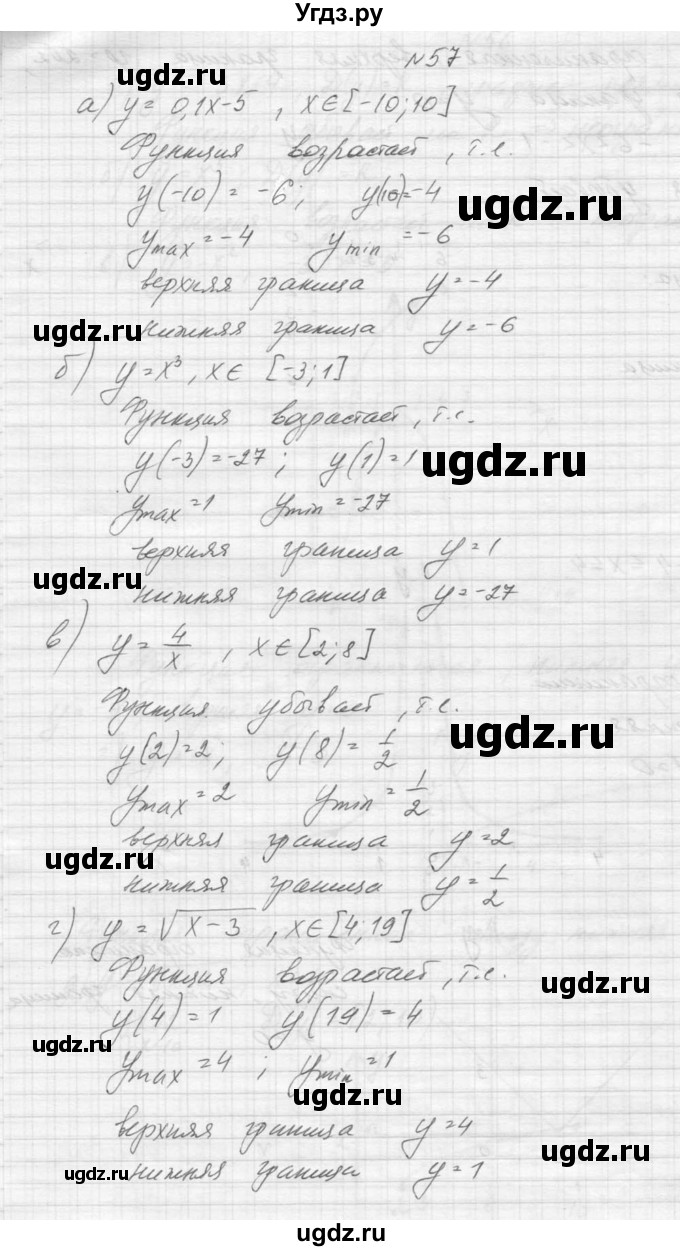 Угдз.ру
№57
а) y = 0,1x-5 , x∈[-10;10]
Функция возрастает, т.е.
y(-10) = -6; y(10)=-4
ugdz.ru
ugdz.ru
y max = -4 y min = -6
верхняя граница y = -4
нижняя граница y = -6
ugdz.ru
б) y = x³, x∈ [-3;1]
Функция возрастает, т.е.
y(-3) = -27 ; y(1) = 1
ugdz.ru
y max = 1 y min = -27
верхняя граница y = 1
ugdz.ru
нижняя граница y = -27
в) y = 4/x , x∈[2;8]
Функция убывает, т.е.
ugdz.ru
y(2)=2; y(8) = 1/2
y max = 2 y min = 1/2
верхняя граница y = 2
ugdz.ru
нижняя граница y = 1/2
г) y = √x-3 , x∈[4;19]
Функция возрастает, т.е.
ugdz.ru
y(4) = 1 y(19) = 4
ugdz.ru
y max = 4 ; y min = 1
ugdz.ru
верхняя граница y = 4
ugdz.ru
нижняя граница y = 1
ugdz.ru
ugdz.ru